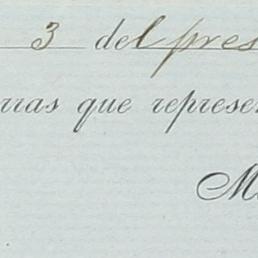 3 del pres
rras que represen
M